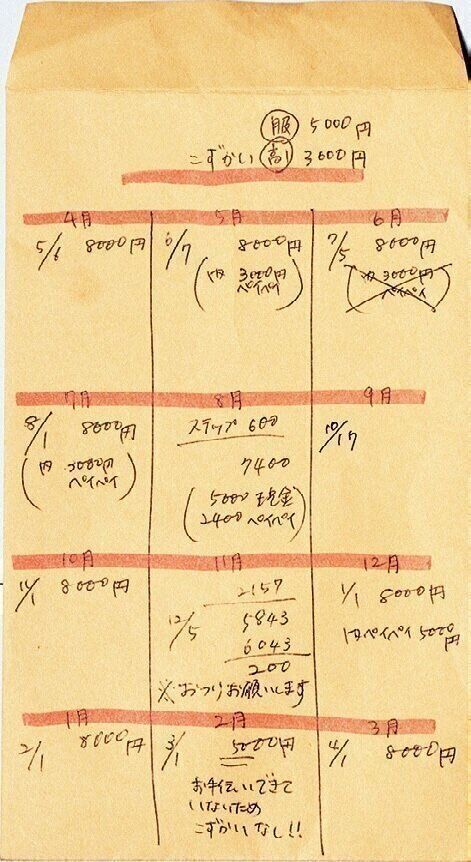 服 5000円
こずかい 高1 3000円
4月
5/6 8000円
5月
6/7 8000円
(内 3000円
ペイペイ)
6月
7/5 8000円
(内 3000円
ペイペイ)
7月
8/1 8000円
(内 3000円
ペイペイ)
8月
ステップ 600
7400
(5000 現金
2400 ペイペイ)
9月
10/17
10月
11/1 8000円
11月
2157
12/5 5843
6043
200
※おつりお願いします
12月
1/1 8000円
内ペイペイ 5000円
1月
2/1 8000円
2月
3/1 5000円
お手伝いできて
いないため
こずかいなし!!
3月
4/1 8000円